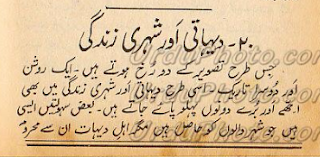 ۲۰- دیہاتی اور شہری زندگی
جس طرح تصویر کے دو رخ ہوتے ہیں۔ ایک روشن
اور دوسرا تاریک۔ اسی طرح دیہاتی اور شہری زندگی میں بھی
اچھے اور برے دونوں پہلو پائے جاتے ہیں۔ بعض سہولتیں ایسی
ہیں جو شہر والوں کو حاصل ہیں مگر اہل دیہات ان سے محروم